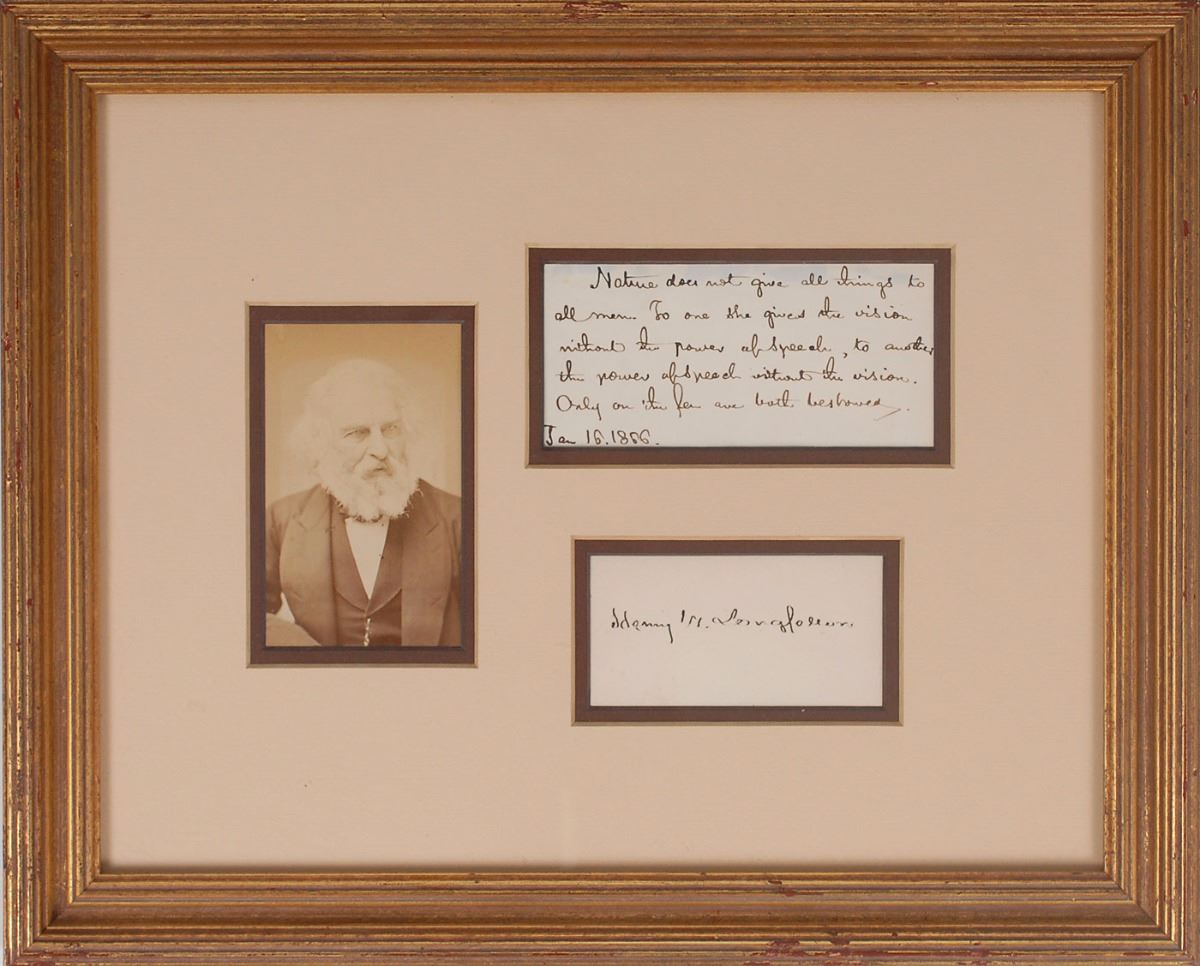 Nature does not give all things to
all men. To one she gives the vision
without the power of speech, to another
the power of speech without the vision.
Only on the few are both bestowed.
Jan 16. 1866.
Henry W. Longfellow